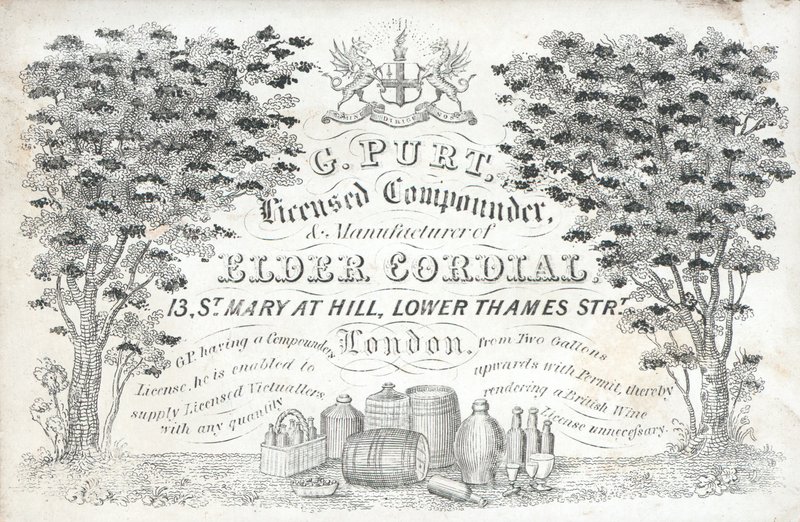 DOMINE DIRIGE NOS
G. PURT,
Licensed Compounder,
& Manufacturer of
ELDER CORDIAL,
13, ST. MARY AT HILL, LOWER THAMES STRT.
London.
G.P. having a Compounders
License, he is enabled to
supply Licensed Victuallers
with any quantity
from Two Gallons
upwards with Permit, thereby
rendering a British Wine
License unnecessary.